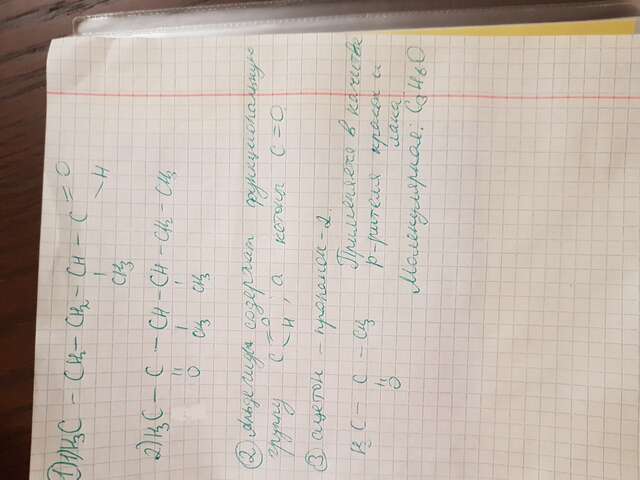 ① 1) H₃C – CH₂ – CH₂ – CH – C = O
CH₃ \ H
2) H₃C – C – CH – CH – CH₂ – CH₃
O CH₃ CH₃
② Альдегиды содержат функциональную
группу C =O \H, а кетоны C=O
③ ацетон – пропанон-2.
H₃C – C – CH₃
O
Применяется в качестве
р-рителя красок и
лака.
Молекулярная: C₃H₆O